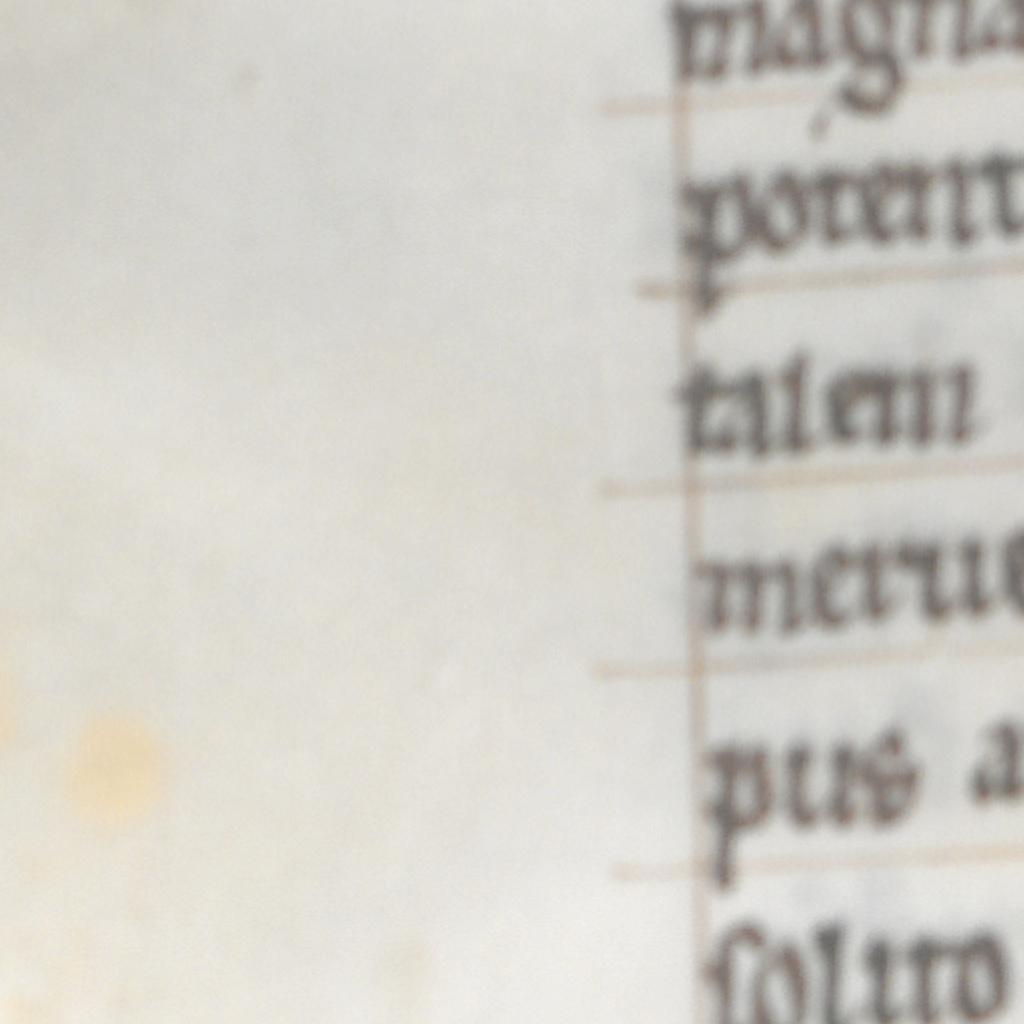 magna
potent
talem
merue
pus a
ſolito